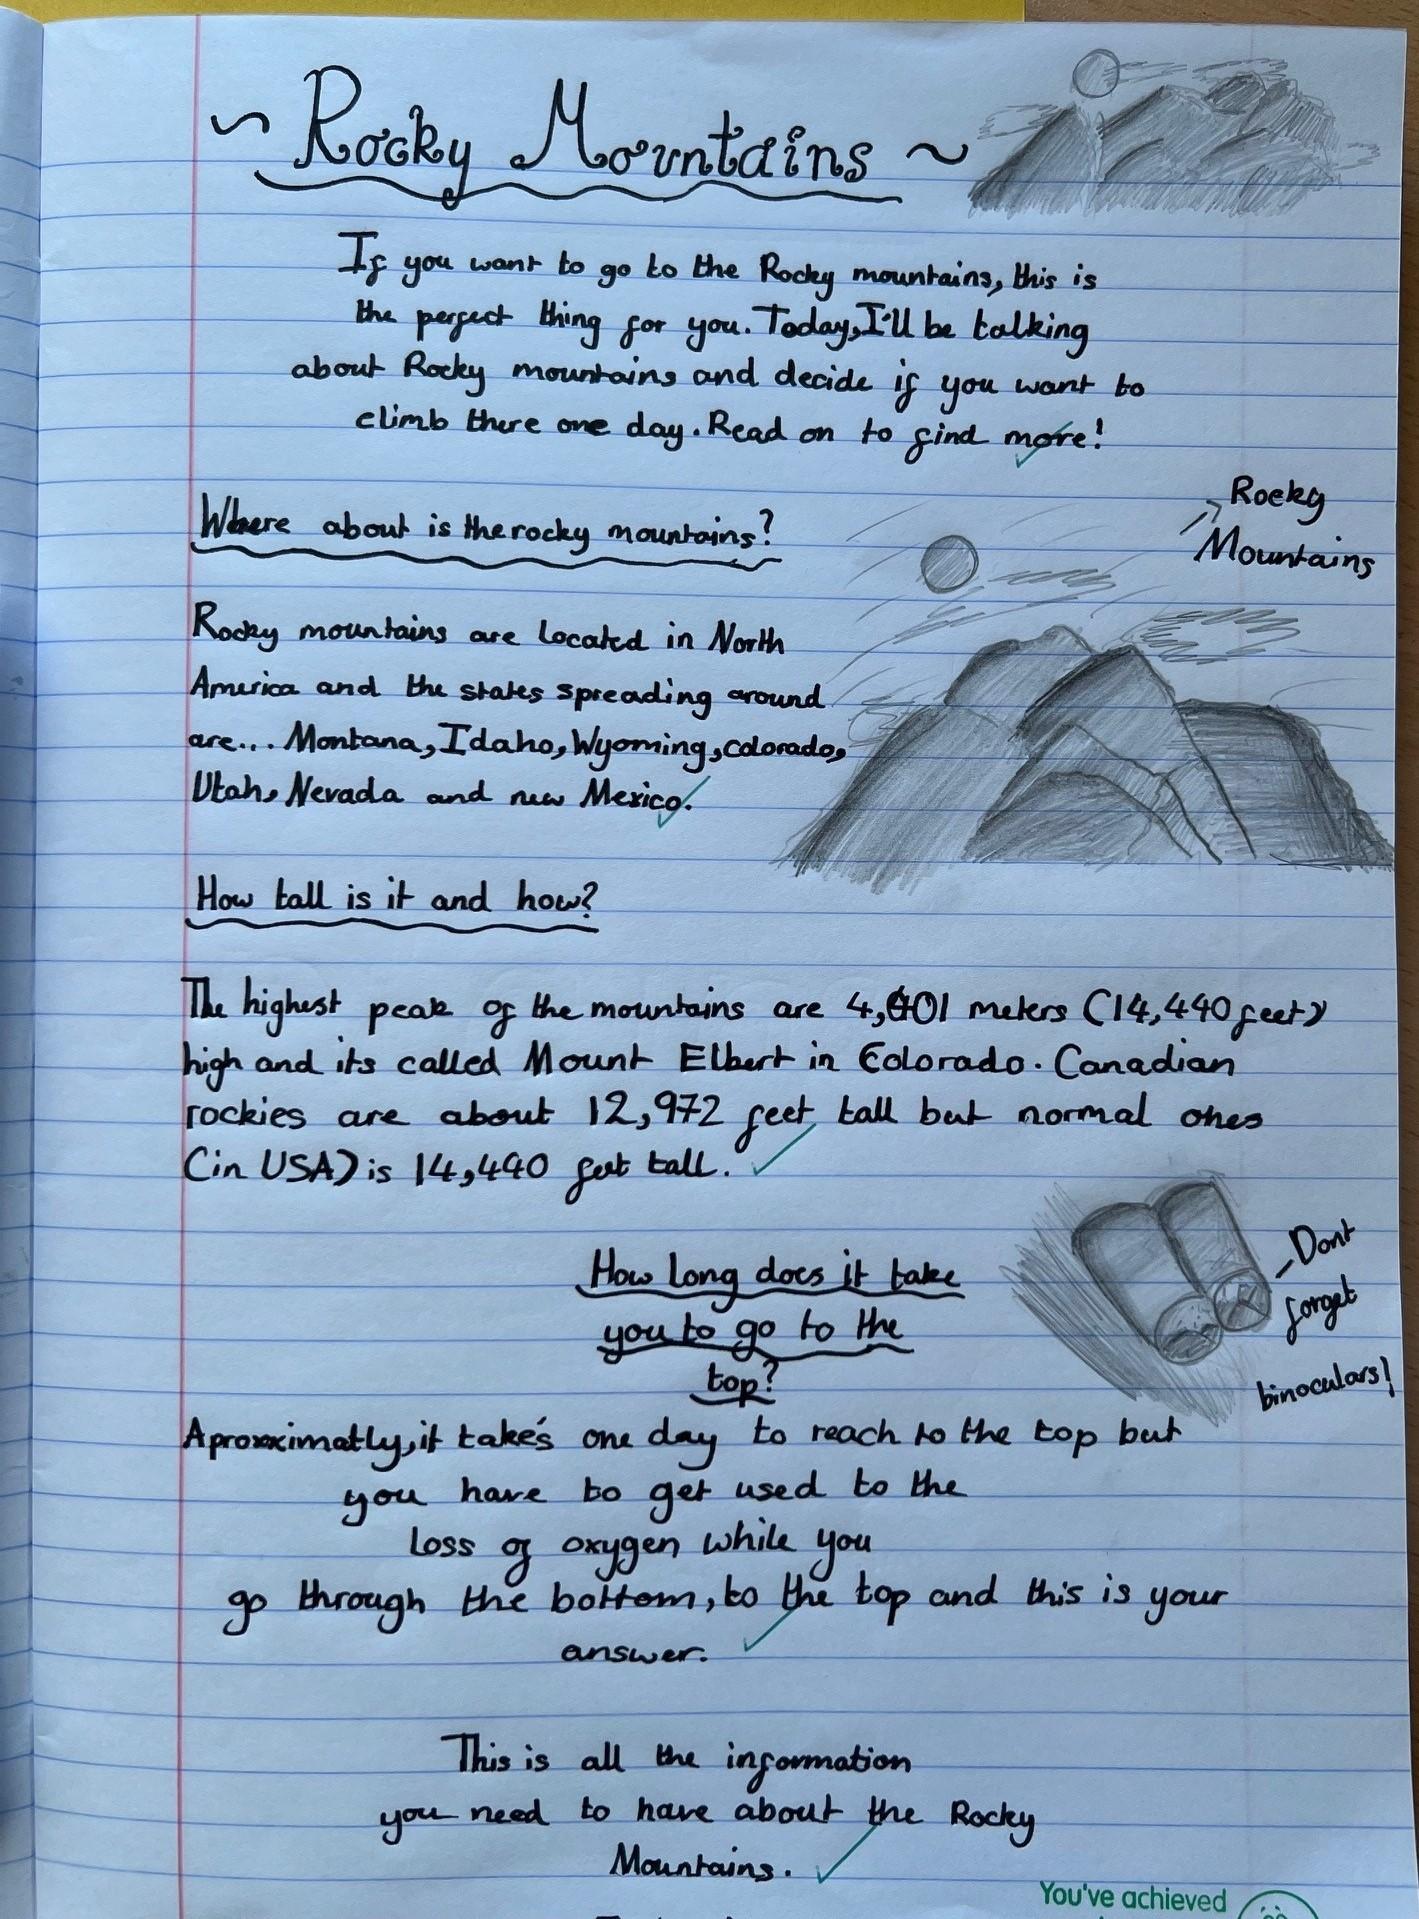 ~ Rocky Mountains ~
If you want to go to the Rocky mountains, this is
the perfect thing for you. Today, I'll be talking
about Rocky mountains and decide if you want to
climb there one day. Read on to find more!
Where about is the rocky mountains?
Rocky
Mountains
Rocky mountains are located in North
America and the states spreading around
are... Montana, Idaho, Wyoming, colorado,
Utah, Nevada and new Mexico.
How tall is it and how?
The highest peak of the mountains are 4,401 meters (14,440 feet)
high and its called Mount Elbert in Colorado. Canadian
rockies are about 12,972 feet tall but normal ones
(in USA) is 14,440 feet tall.
How long does it take
you to go to the
top?
Dont
forget
binoculars!
Aproxximatly, it take's one day to reach to the top but
you have to get used to the
loss of oxygen while you
go through the bottom, to the top and this is your
answer.
This is all the information
you need to have about the Rocky
Mountains.
You've achieved